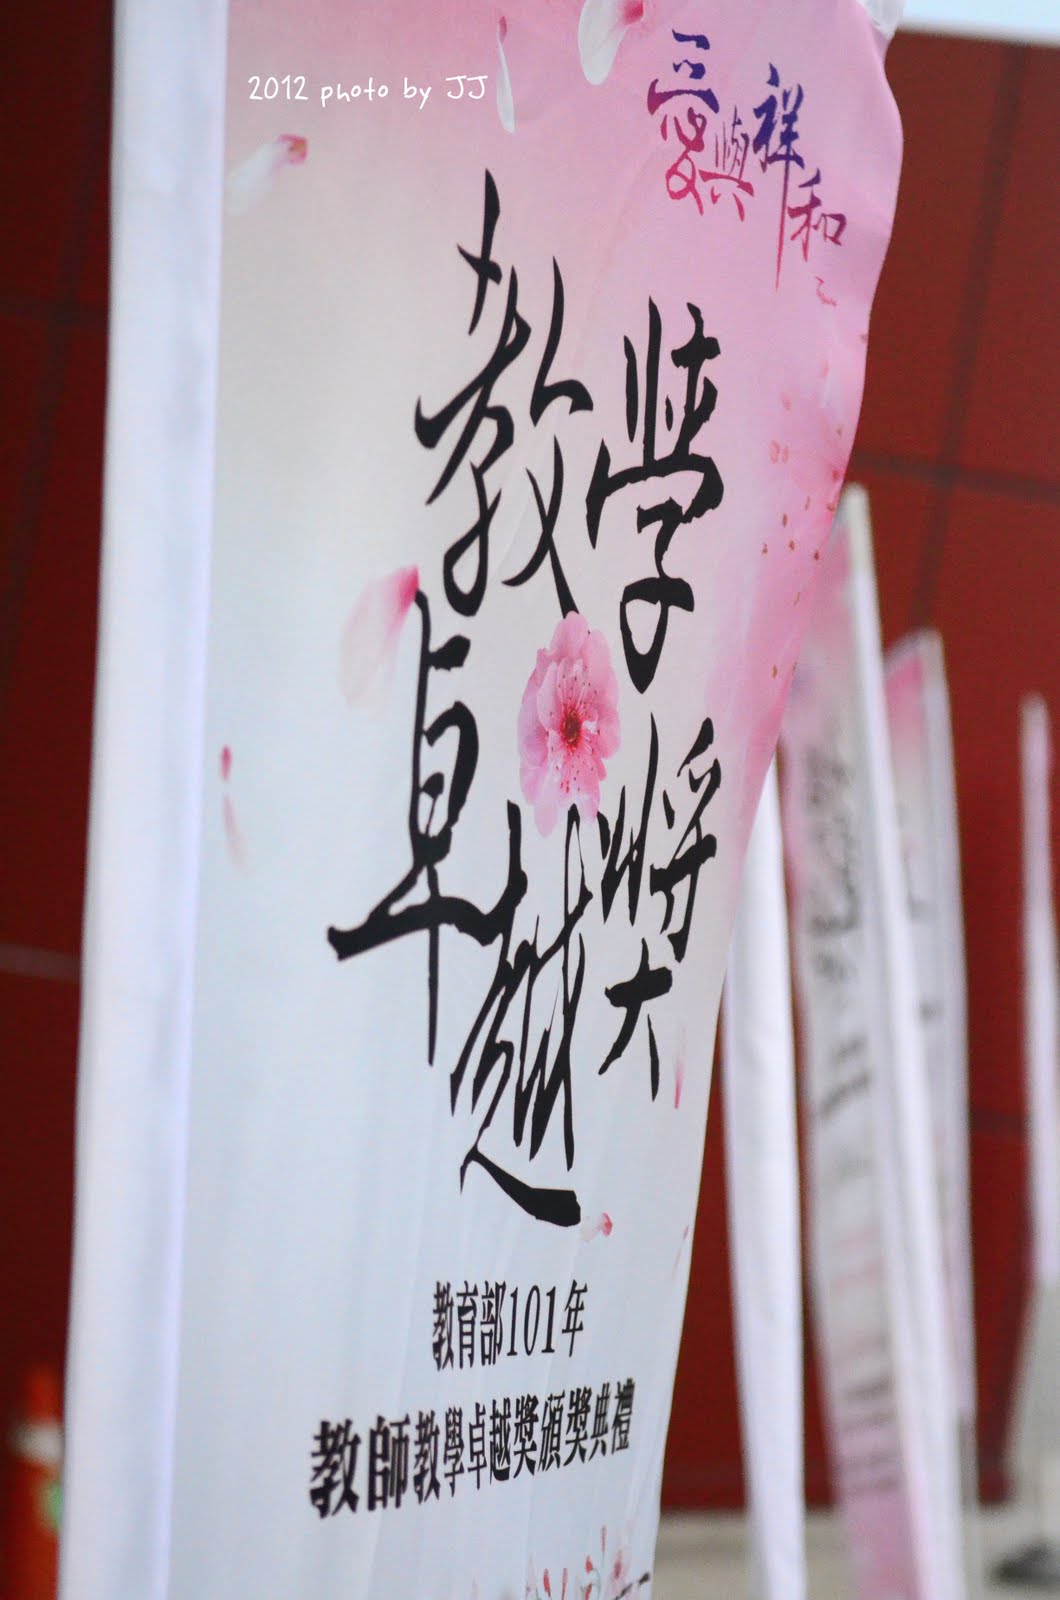 2012 photo by JJ
愛與祥和
教學
卓越獎
教育部101年
教師教學卓越獎頒獎典禮